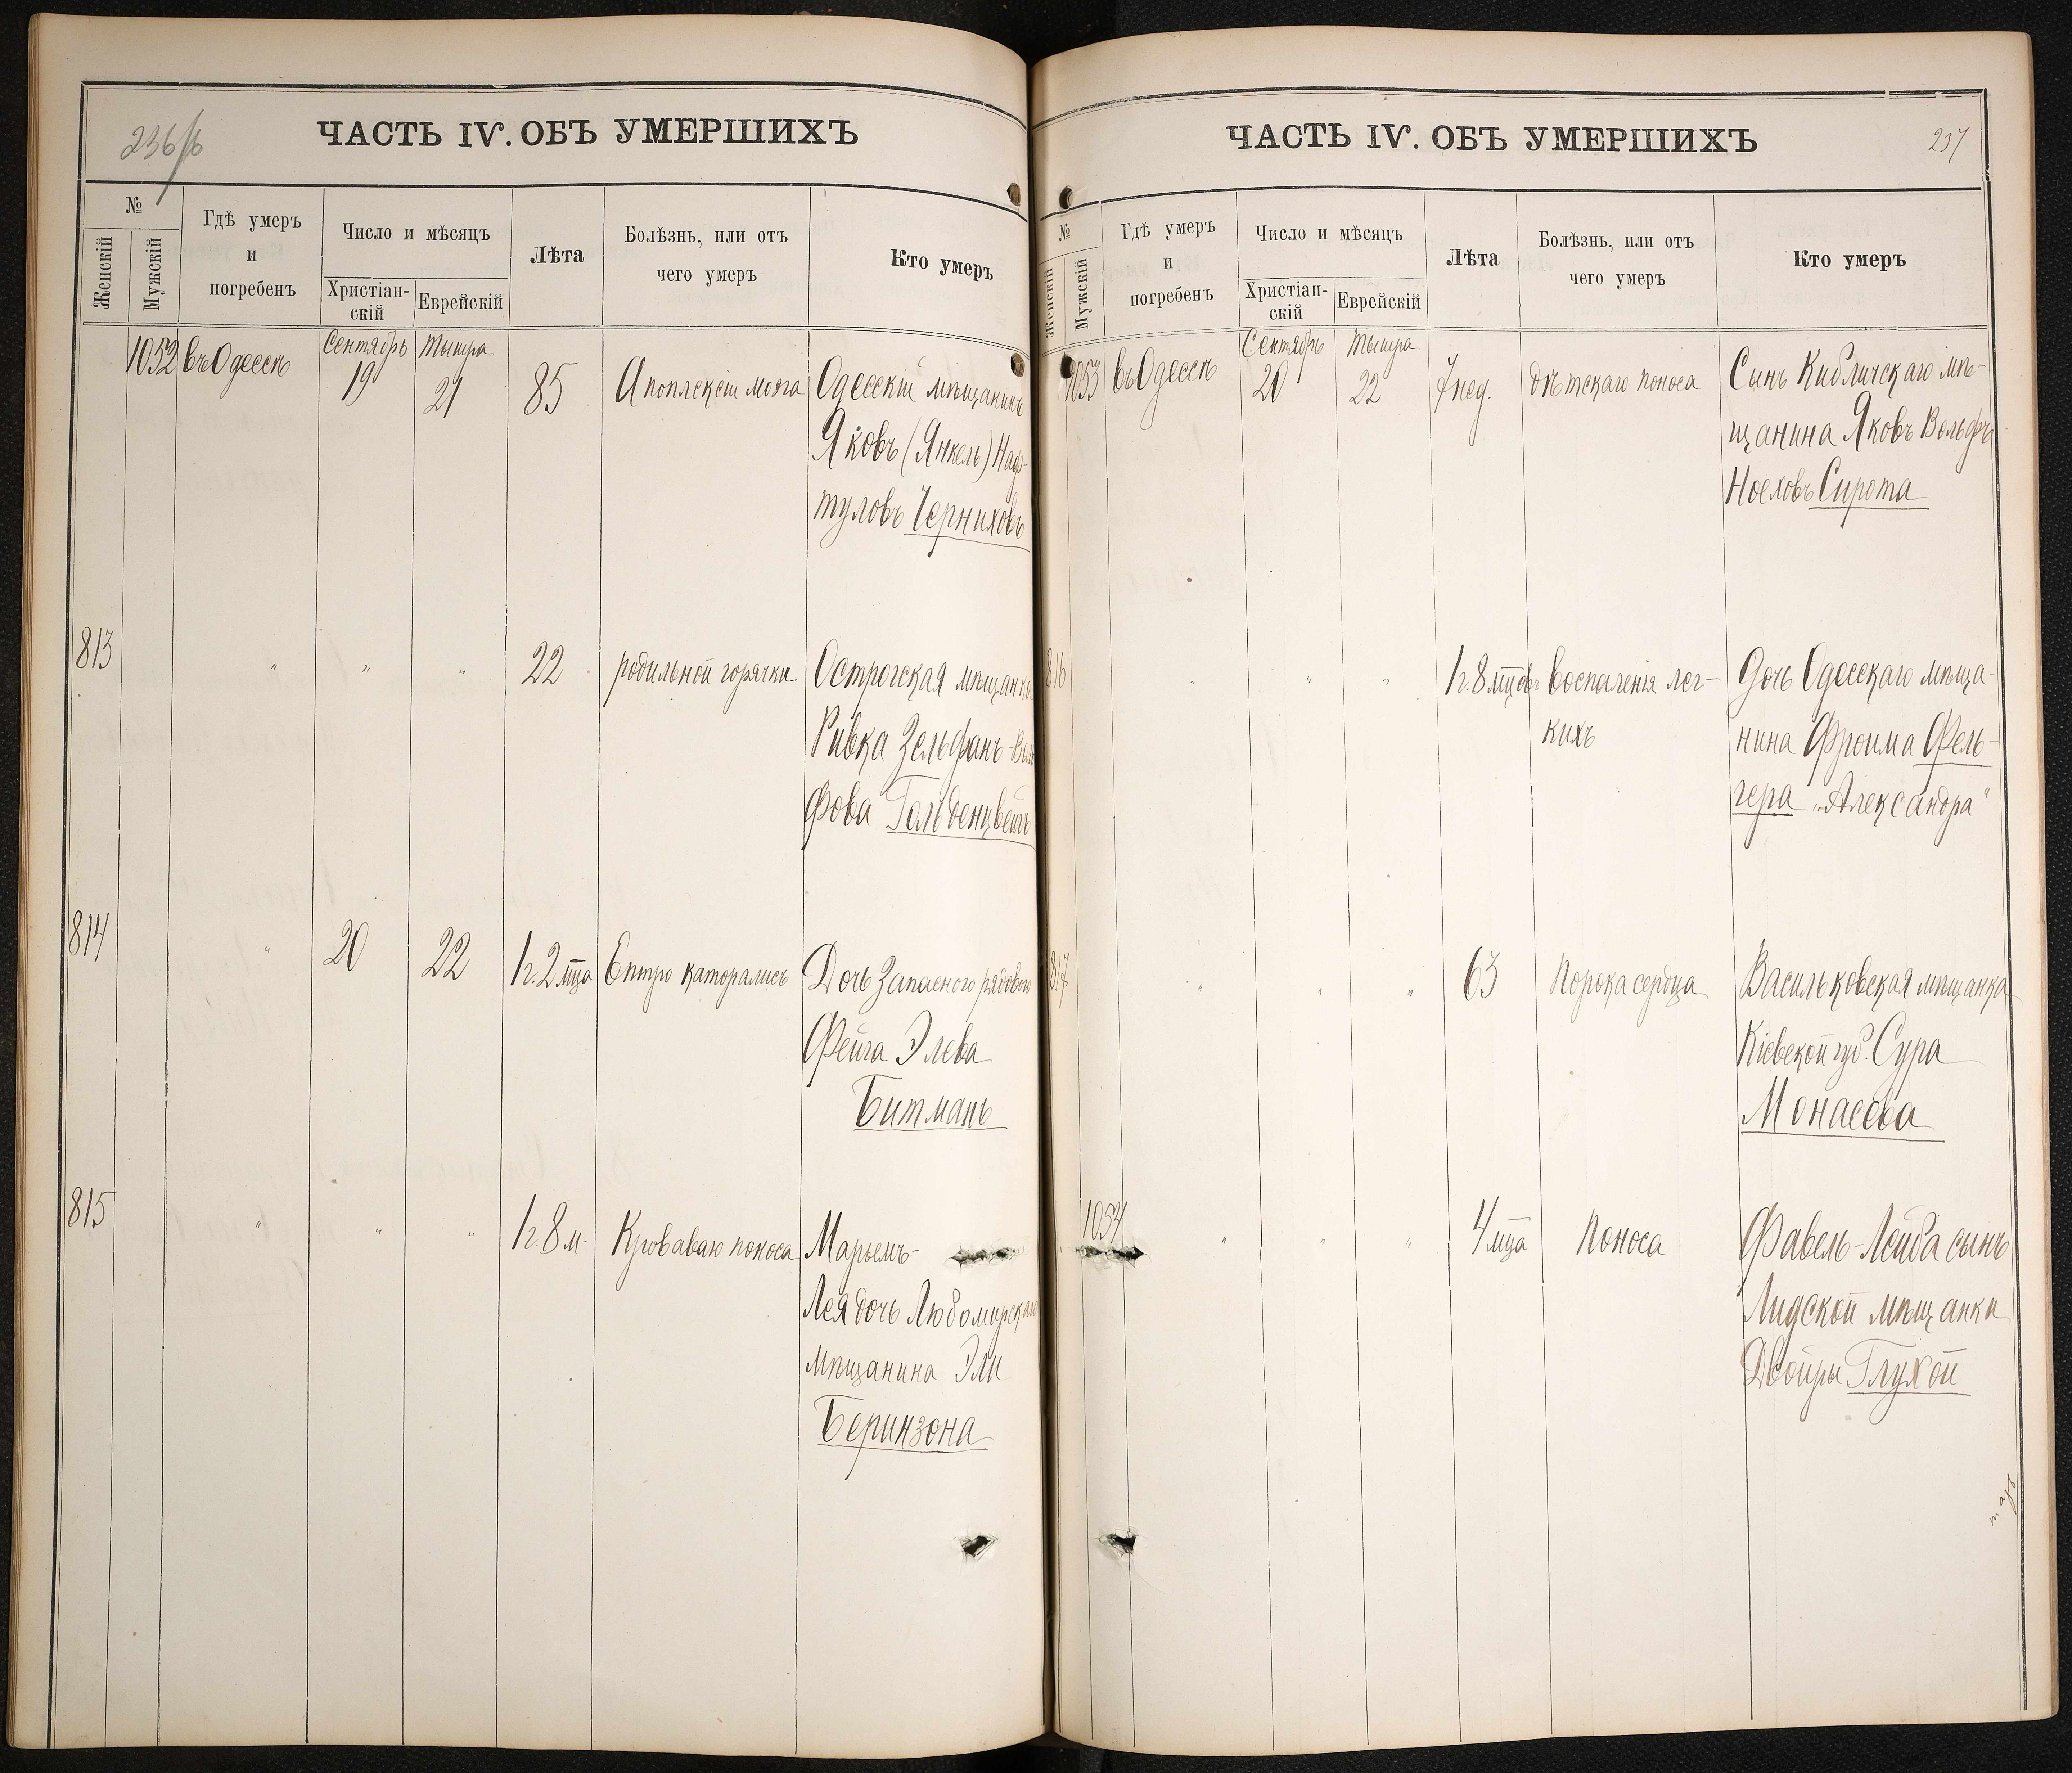 236/б
ЧАСТЬ IѴ. ОБЪ УМЕРШИХЪ
№
Женскій
Мужскій
Гдѣ умеръ
и
погребенъ
Число и мѣсяцъ
Христіан-
скій
Еврейскій
Лѣта
Болѣзнь, или отъ
чего умеръ
Кто умеръ
1052 въ Одессѣ Сентябрь 19 Тышра 21 85 Апоплексіи мозга Одесскій мѣщанинъ
Яковъ (Янкель) Наф-
туловъ Черниховъ
813 " " " 22 родильной горячки Острогская мѣщанка
Ривка Зельфанъ-Воль
фова Гольденцвейгъ
814 " 20 22 1 г. 2 мца Ентро каторалисъ Дочь Запасного рядового
Фейга Элева
Битманъ
815 " " " 1 г. 8 м. Кроваваго поноса Марьемъ-
Лея дочь Любомирскаго
мѣщанина Эли
Беринзона
ЧАСТЬ IѴ. ОБЪ УМЕРШИХЪ
237
№
Женскій
Мужскій
Гдѣ умеръ
и
погребенъ
Число и мѣсяцъ
Христіан-
скій
Еврейскій
Лѣта
Болѣзнь, или отъ
чего умеръ
Кто умеръ
1053 въ Одессѣ Сентябрь 20 Тышра 22 7 нед. дѣтскаго поноса Сынъ Кибличскаго мѣ-
щанина Яковъ Вольфъ
Ноеховъ Сирота
816 " " " 1 г. 8 мцовъ воспаленія лег-
кихъ
Дочь Одесскаго мѣща-
нина Фроима Фель-
гера „Александра"
817 " " " 63 Порока сердца Васильковская мѣщанка
Кіевской губ. Сура
Монасова
1054 " " " 4 мца Поноса Фавель-Лейба сынъ
Лидской мѣщанки
Двойры Глухой